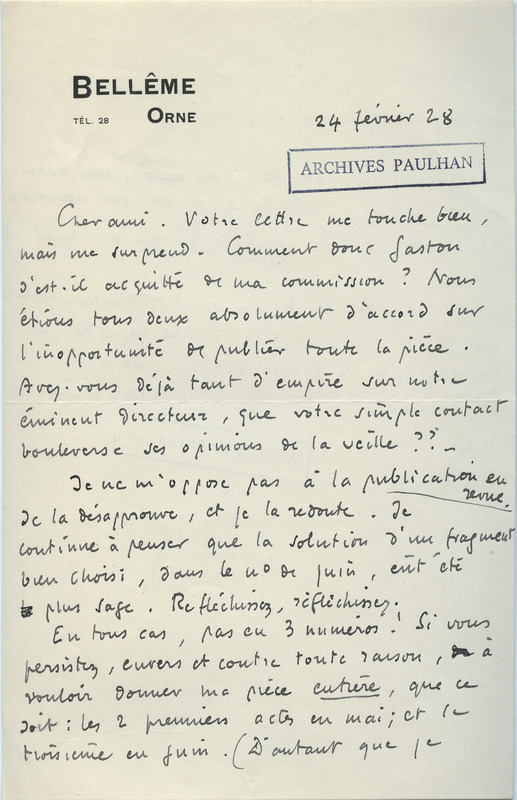 BELLÊME
TÉL. 28 ORNE
24 février 28
ARCHIVES PAULHAN
Cher ami. Votre lettre me touche bien,
mais me surprend. Comment donc Gaston
s'est-il acquitté de ma commission ? Nous
étions tous deux absolument d'accord sur
l'inopportunité de publier toute la pièce.
Avez-vous déjà tant d'empire sur notre
éminent directeur, que votre simple contact
bouleverse ses opinions de la veille ??_
Je ne m'oppose pas à la publication en
revue.
Je la désapprouve, et je la redoute. Je
continue à penser que la solution d'un fragment
bien choisi, dans le nº de juin, eût été
plus sage. Réfléchissez, réfléchissez.
En tous cas, pas en 3 numéros ! Si vous
persistez, envers et contre toute raison, à
vouloir donner ma pièce entière, que ce
soit : les 2 premiers actes en mai ; et le
troisième en juin. (D'autant que je